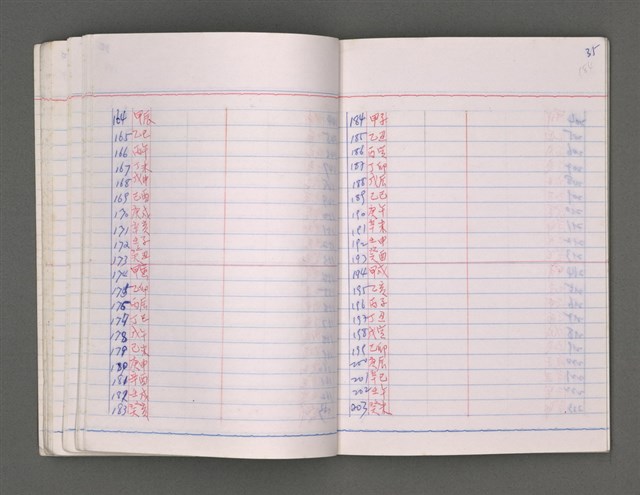 164 甲辰
165 乙巳
166 丙午
167 丁未
168 戊申
169 乙酉
170 庚戌
171 辛亥
172 壬子
173 癸丑
174 甲寅
175 乙卯
176 丙辰
177 丁巳
178 戊午
179 乙未
180 庚申
181 辛酉
182 壬戌
183 癸亥
35
184
184 甲子
185 乙丑
186 丙寅
187 丁卯
188 戊辰
189 乙巳
190 庚午
191 辛未
192 壬申
193 癸酉
194 甲戌
195 乙亥
196 丙子
197 丁丑
198 戊寅
199 乙卯
200 庚辰
201 辛巳
202 壬午
203 癸未